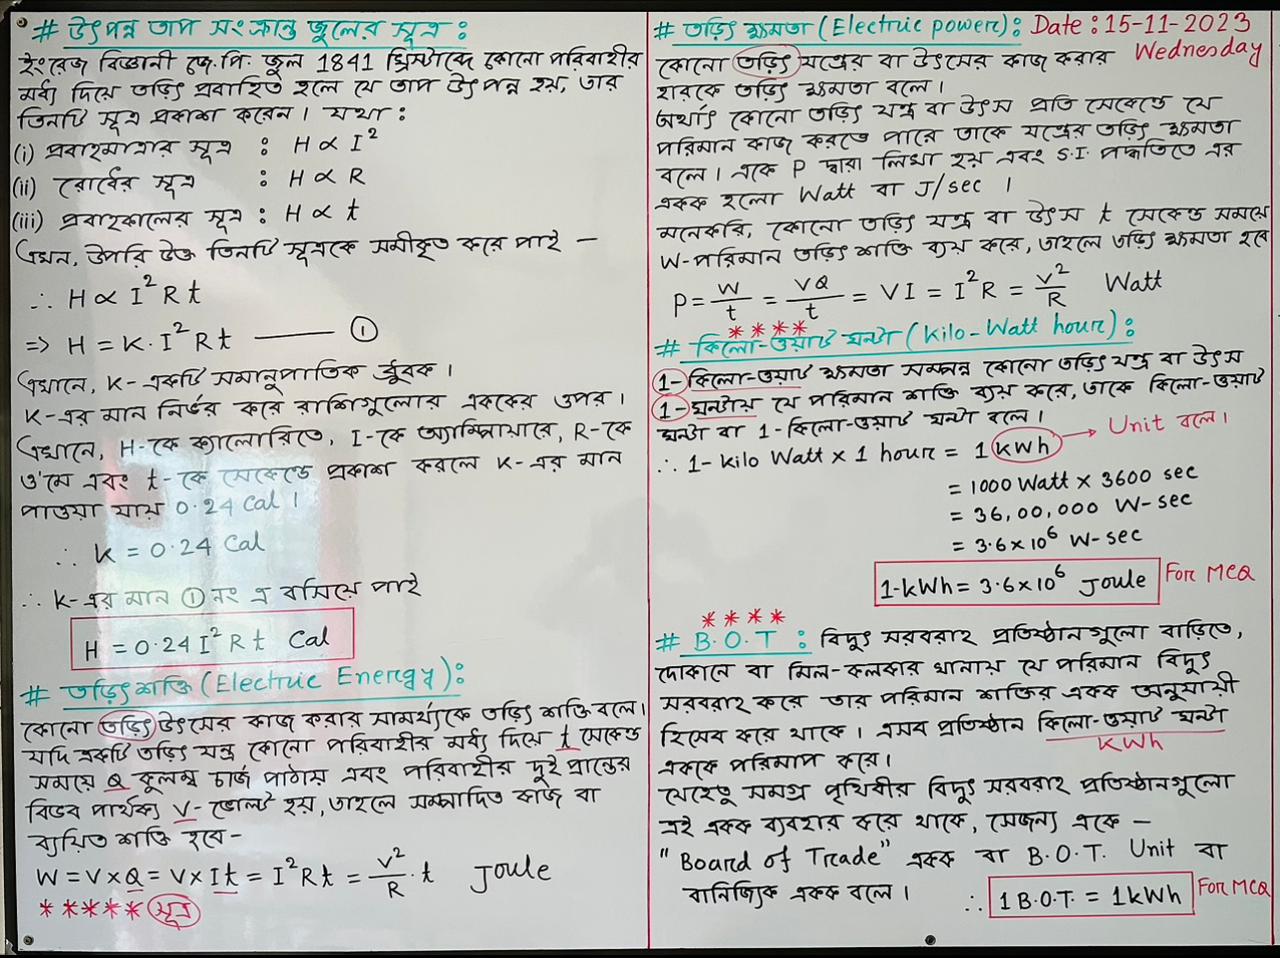 # উৎপন্ন তাপ সংক্রান্ত জুলের সূত্র :
ইংরেজ বিজ্ঞানী জে. পি. জুল 1841 খ্রিস্টাব্দে কোনো পরিবাহীর
মধ্য দিয়ে তড়িৎ প্রবাহিত হলে যে তাপ উৎপন্ন হয়, তার
তিনটি সূত্র প্রকাশ করেন। যথা :
(i) প্রবাহমাত্রার সূত্র : H ∝ I²
(ii) রোধের সূত্র : H ∝ R
(iii) প্রবাহকালের সূত্র : H ∝ t
এখন, উপরি উক্ত তিনটি সূত্রকে সমীকৃত করে পাই –
∴ H ∝ I² R t
=> H = K · I² R t ——— ①
এখানে, K- একটি সমানুপাতিক ধ্রুবক।
K-এর মান নির্ভর করে রাশিগুলোর এককের ওপর।
এখানে, H-কে ক্যালোরিতে, I-কে অ্যাম্পিয়ারে, R-কে
ও'মে এবং t-কে সেকেন্ডে প্রকাশ করলে K-এর মান
পাওয়া যায় 0.24 Cal।
∴ K = 0.24 Cal
∴ K-এর মান ① নং এ বসিয়ে পাই
H = 0.24 I² R t Cal
# তড়িৎ শক্তি (Electric Energy) :
কোনো তড়িৎ উৎসের কাজ করার সামর্থ্যকে তড়িৎ শক্তি বলে।
যদি একটি তড়িৎ যন্ত্র কোনো পরিবাহীর মধ্য দিয়ে t সেকেন্ড
সময়ে Q কুলম্ব চার্জ পাঠায় এবং পরিবাহীর দুই প্রান্তের
বিভব পার্থক্য V- ভোল্ট হয়, তাহলে সম্পাদিত কাজ বা
ব্যয়িত শক্তি হবে –
W = V × Q = V × It = I² R t = V²/R · t Joule
***** সূত্র
# তড়িৎ ক্ষমতা (Electric power) : Date : 15-11-2023
Wednesday
কোনো তড়িৎ যন্ত্রের বা উৎসের কাজ করার
হারকে তড়িৎ ক্ষমতা বলে।
অর্থাৎ কোনো তড়িৎ যন্ত্র বা উৎস প্রতি সেকেন্ডে যে
পরিমান কাজ করতে পারে তাকে যন্ত্রের তড়িৎ ক্ষমতা
বলে। একে P দ্বারা লিখা হয় এবং S.I. পদ্ধতিতে এর
একক হলো Watt বা J/sec ।
মনেকরি, কোনো তড়িৎ যন্ত্র বা উৎস t সেকেন্ড সময়ে
W-পরিমান তড়িৎ শক্তি ব্যয় করে, তাহলে তড়িৎ ক্ষমতা হবে
P = W/t = VQ/t = VI = I²R = V²/R Watt
****
# কিলো-ওয়াট ঘন্টা (Kilo-Watt hour) :
1-কিলো-ওয়াট ক্ষমতা সম্পন্ন কোনো তড়িৎ যন্ত্র বা উৎস
1-ঘন্টায় যে পরিমান শক্তি ব্যয় করে, তাকে কিলো-ওয়াট
ঘন্টা বা 1-কিলো-ওয়াট ঘন্টা বলে।
∴ 1- Kilo Watt × 1 hour = 1 kWh → Unit বলে।
= 1000 Watt × 3600 sec
= 36,00,000 W-sec
= 3.6×10⁶ W-sec
1-kWh = 3.6×10⁶ Joule For MCQ
****
# B.O.T : বিদ্যুৎ সরবরাহ প্রতিষ্ঠানগুলো বাড়িতে,
দোকানে বা মিল-কলকার খানায় যে পরিমান বিদ্যুৎ
সরবরাহ করে তার পরিমান শক্তির একক অনুযায়ী
হিসেব করে থাকে। এসব প্রতিষ্ঠান কিলো-ওয়াট ঘন্টা
KWh
এককে পরিমাপ করে।
যেহেতু সমগ্র পৃথিবীর বিদ্যুৎ সরবরাহ প্রতিষ্ঠানগুলো
এই একক ব্যবহার করে থাকে, সেজন্য একে –
"Board of Trade" একক বা B.O.T. Unit বা
বানিজ্যিক একক বলে।
∴ 1 B.O.T. = 1kWh For MCQ